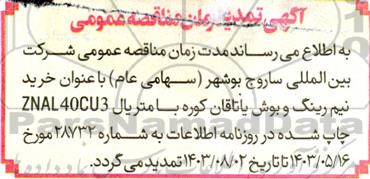 آگهی تمدید زمان مناقصه عمومی
به اطلاع می رساند مدت زمان مناقصه عمومی شرکت
بین المللی ساروج بوشهر (سهامی عام) با عنوان خرید
نیم رینگ و بوش یاتاقان کوره با متریال ZNAL40CU3
چاپ شده در روزنامه اطلاعات به شماره ۲۸۷۳۲ مورخ
۱۴۰۳/۰۵/۱۶ تا تاریخ ۱۴۰۳/۰۸/۰۲ تمدید می گردد.
ParsNamadData